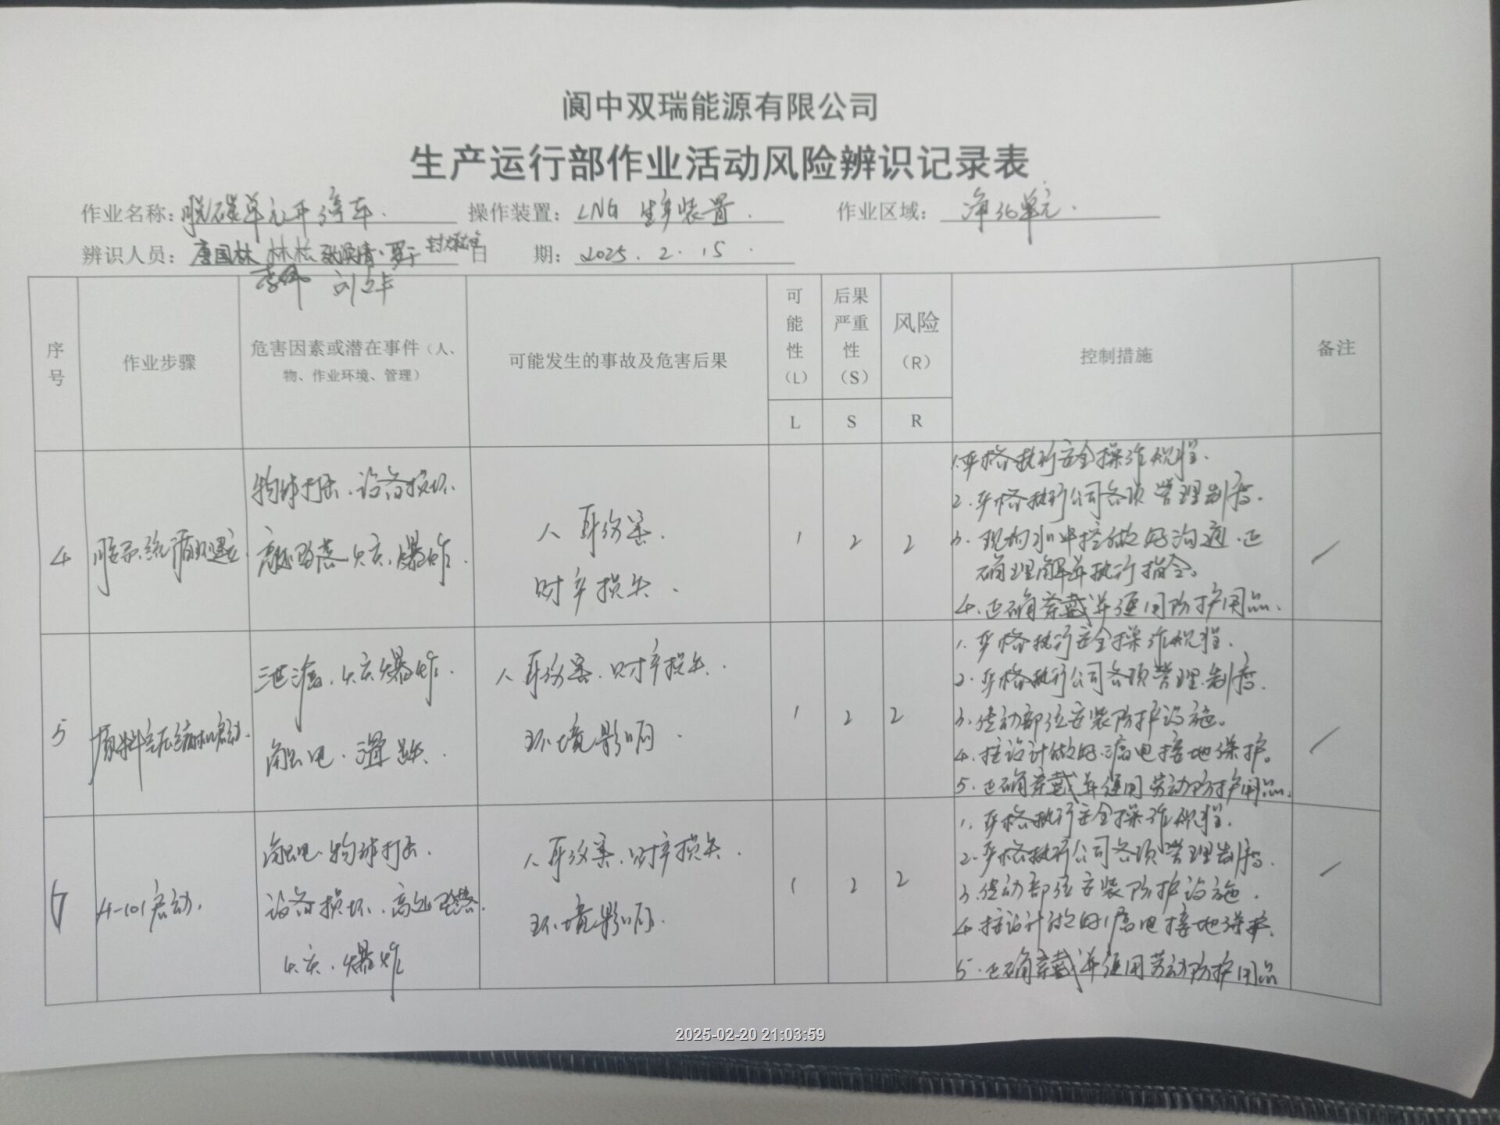 阆中双瑞能源有限公司
生产运行部作业活动风险辨识记录表
作业名称：脱碳单元开停车. 操作装置：LNG 生产装置. 作业区域：净化单元.
辨识人员：唐国林 林松 罗于 日 期：2025. 2. 15
李伟
序号 作业步骤 危害因素或潜在事件（人、物、作业环境、管理） 可能发生的事故及危害后果 可能性（L） 后果严重性（S） 风险（R） 控制措施 备注
L S R
4 物体打击、设备损坏. 高处坠落、火灾、爆炸. 人身伤害. 财产损失. 1 2 2
1.严格执行安全操作规程.
2.严格执行公司各项管理制度.
3.现场和中控做好沟通、正
确理解并执行指令。
4.正确穿戴并使用防护用品.
5 原料气压缩机启动. 泄漏、火灾爆炸. 触电、噪. 人身伤害、财产损失. 环境影响. 1 2 2
1.严格执行安全操作规程.
2.严格执行公司各项管理制度.
3.传动部位安装防护设施。
4.按设计做好漏电接地保护。
5.正确穿戴并使用劳动防护用品.
6 H-101启动. 触电、物体打击. 设备损坏、高处坠落. 火灾、爆炸 人身伤害、财产损失. 环境影响. 1 2 2
1.严格执行安全操作规程.
2.严格执行公司各项管理制度.
3.传动部位安装防护设施.
4.按设计做好漏电接地保护.
5.正确穿戴并使用劳动防护用品
2025-02-20 21:03:59